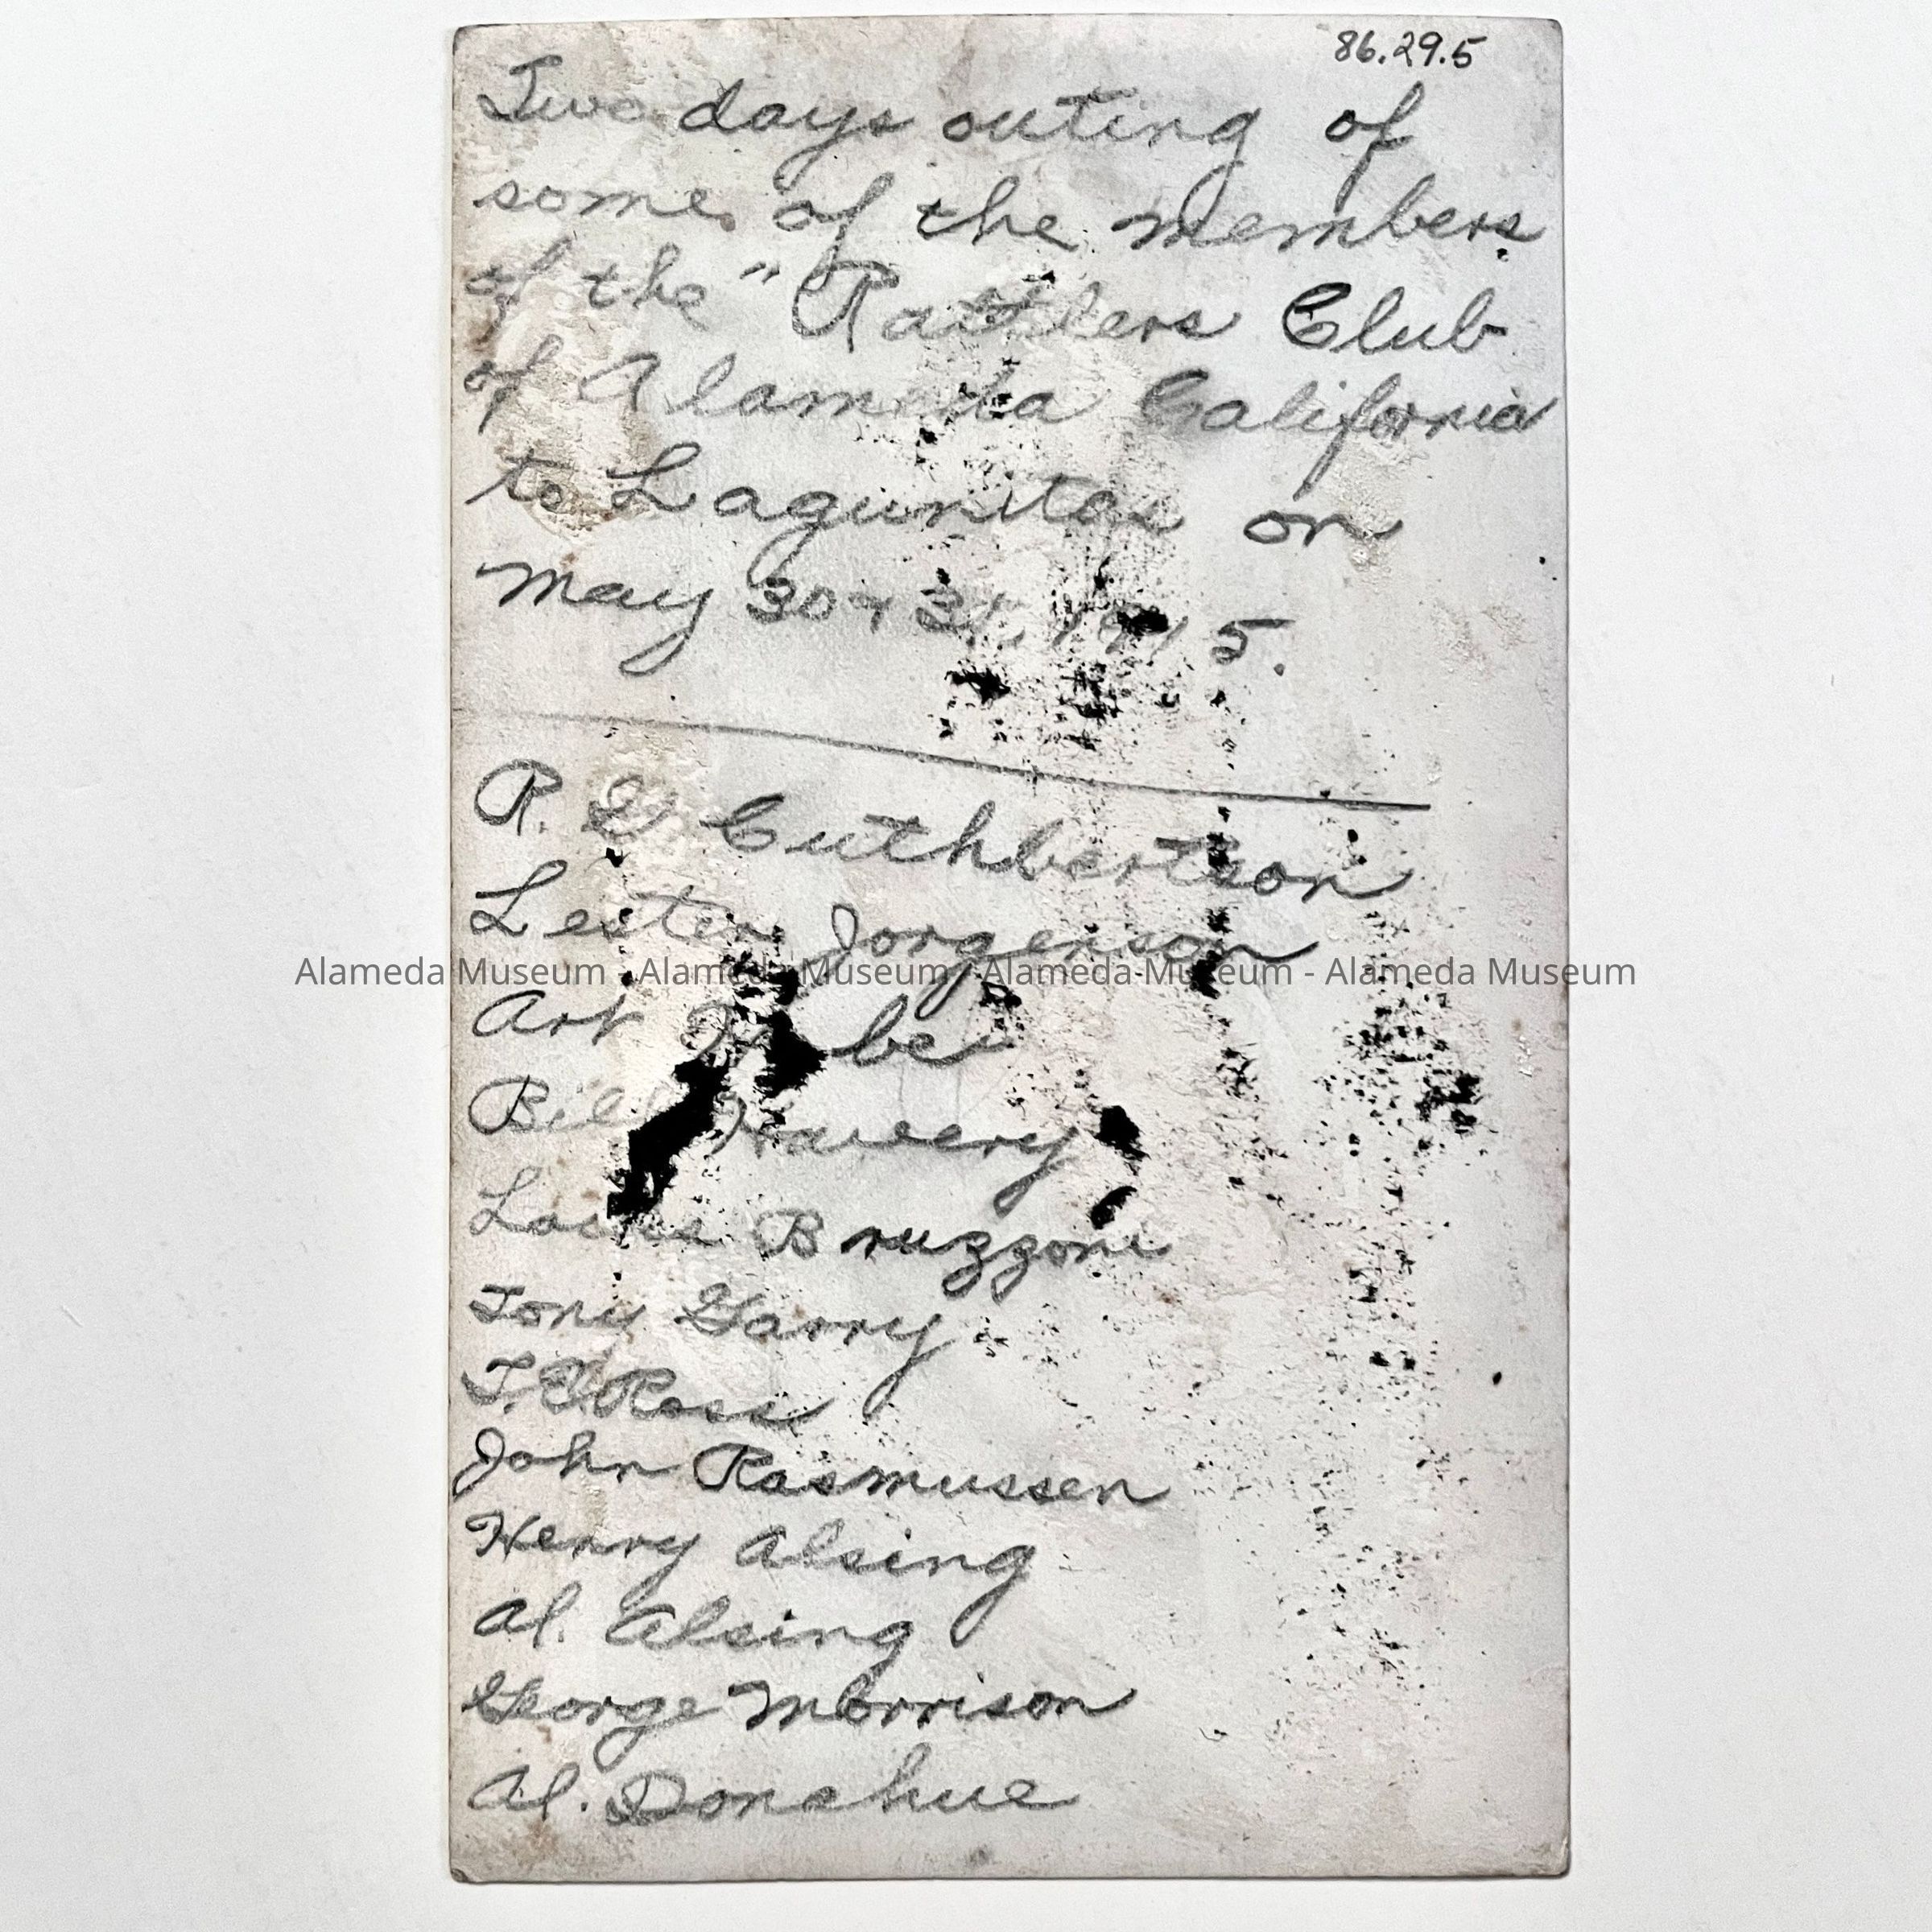 86.29.5
Two days outing of
some of the members
of the " Rattlers Club
of Alameda California
to Lagunitas on
May 30 + 31, 1915.
R. G. Cuthbertson
Lester Jorgenson
Alameda Museum - Alameda Museum - Alameda Museum - Alameda Museum
Art
Bill
Louis Bruzzone
Tony Garry
T. Ross
John Rasmussen
Henry Alsing
Al. Alsing
George Morrison
Al. Donahue